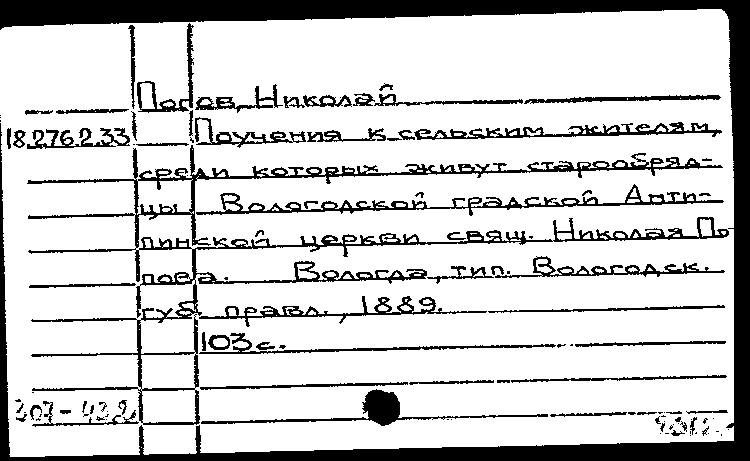 Попов, Николай
18.276.2.33 Поучения к сельским жителям,
среди которых живут старообряд-
цы Вологодской градской Анти-
пинской церкви свящ. Николая По
пова. Вологда, тип. Вологодск.
губ. правл., 1889.
103 с.
307-432